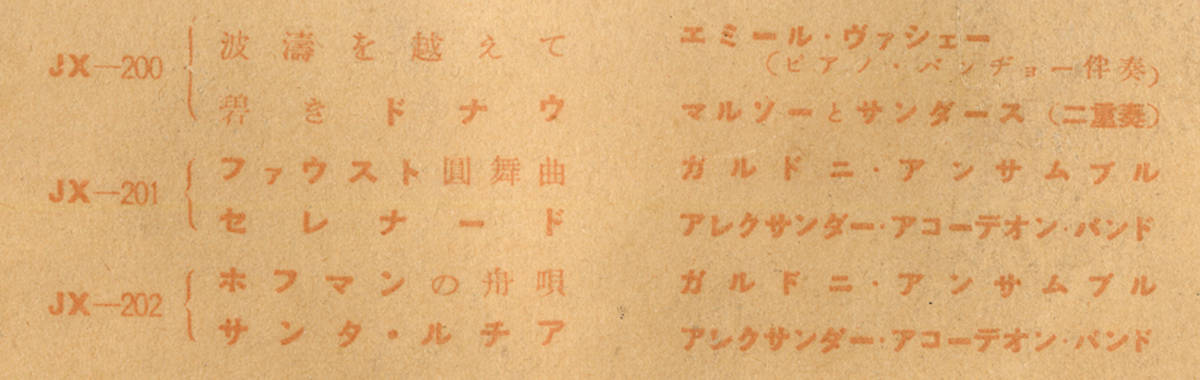 JX—200
波濤を越えて エミール・ヴァシェー
(ピアノ・バンヂョー伴奏)
碧きドナウ マルソーとサンダース(二重奏)
JX—201
ファウスト圓舞曲 ガルドニ・アンサムブル
セレナード アレクサンダー・アコーデオン・バンド
JX—202
ホフマンの舟唄 ガルドニ・アンサムブル
サンタ・ルチア アレクサンダー・アコーデオン・バンド